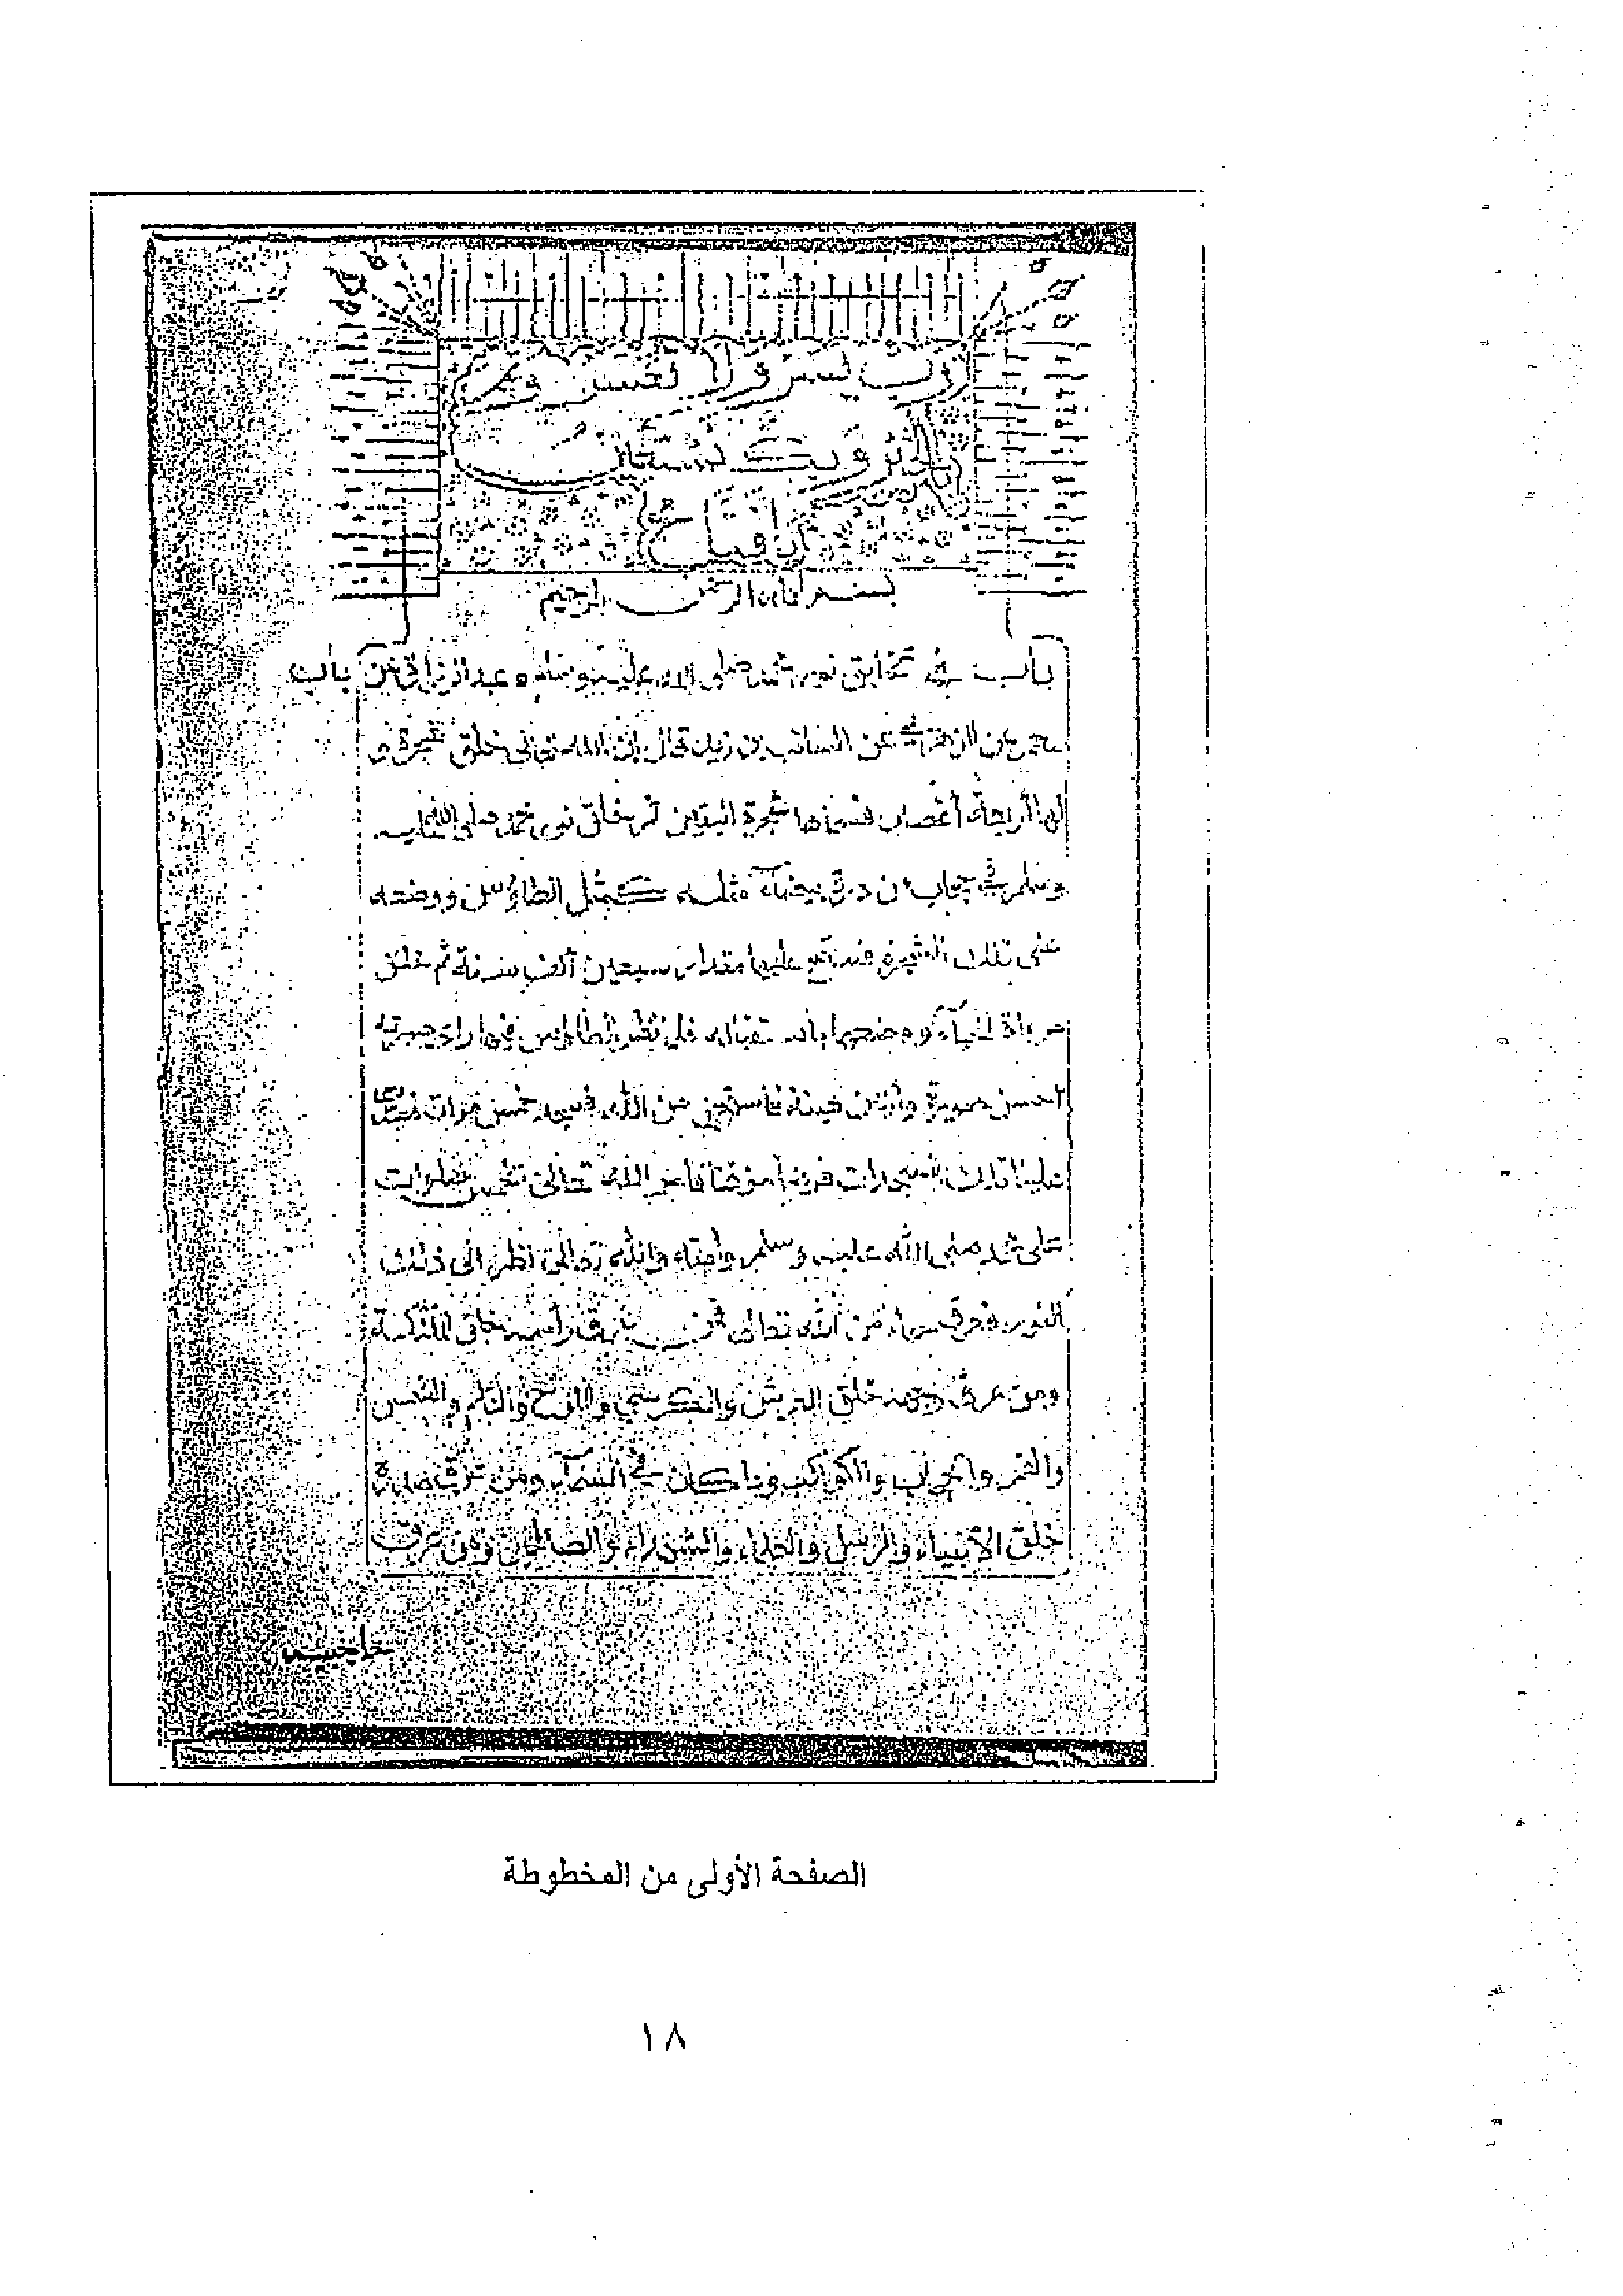 رب يسر ولا تعسر وتمم
بالخير وبك نستعين
يا فتاح
بسم الله الرحمن الرحيم
باب في تخليق نور محمد صلى الله عليه وسلم عبد الرزاق عن
معمر عن الزهري عن السائب بن زيد قال إن الله تعالى خلق شجرة و
لها أربعة أغصان فسماها شجرة اليقين ثم خلق نور محمد صلى الله عليه
وسلم في حجاب من درة بيضاء مثله كمثل الطاؤس ووضعه
على تلك الشجرة فسبح عليها مقدار سبعين ألف سنة ثم خلق
مرآة الحياء ووضعها باستقباله فلما نظر الطاؤس فيها رأى صورته
أحسن صورة وأزين هيئة فاستحى من الله فسجد خمس مرات فصارت
علينا تلك السجدات فرضا موقتا فأمر الله تعالى خمس صلوات
على محمد صلى الله عليه وسلم وأمته والله تعالى نظر الى ذلك
النور فعرق حياء من الله تعالى فمن عرق رأسه خلق الملائكة
ومن عرق وجهه خلق العرش والكرسي واللوح والقلم والشمس
والقمر والحجاب والكواكب وما كان في السماء ومن عرق صدره
خلق الأنبياء والرسل والعلماء والشهداء والصالحين ومن عرق
حاجبيه
الصفحة الأولى من المخطوطة
١٨